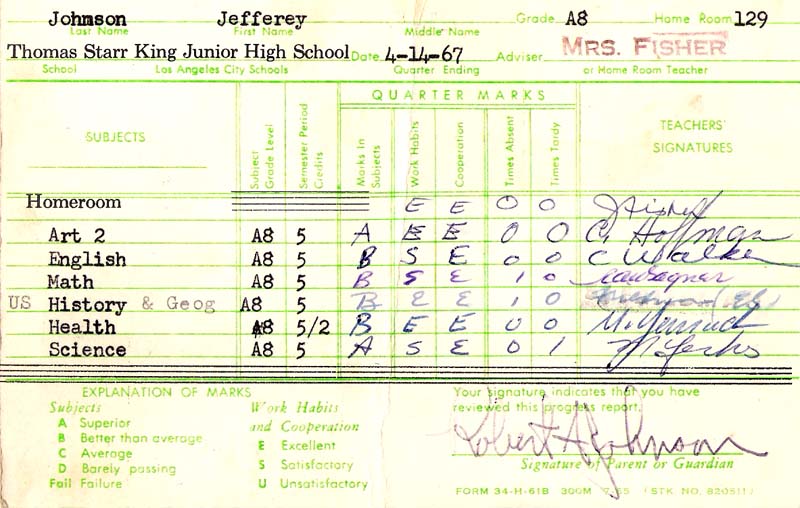 Johnson Jefferey Grade A8 Home Room 129
Last Name First Name Middle Name
Thomas Starr King Junior High School Date 4-14-67 Adviser MRS. FISHER
School Los Angeles City Schools Quarter Ending or Home Room Teacher
QUARTER MARKS
SUBJECTS Subject Grade Level Semester Period Credits Marks In Subjects Work Habits Cooperation Times Absent Times Tardy TEACHERS' SIGNATURES
Homeroom E E 0 0 J Fisher
Art 2 A8 5 A E E 0 0 C. Hoffman
English A8 5 B S E 0 0 C Walker
Math A8 5 B S E 1 0
US History & Geog A8 5 B E E 1 0
Health A8 5/2 B E E 0 0
Science A8 5 A S E 0 1
EXPLANATION OF MARKS Your signature indicates that you have
Subjects Work Habits reviewed this progress report.
A Superior and Cooperation
B Better than average E Excellent Robert A Johnson
C Average S Satisfactory Signature of Parent or Guardian
D Barely passing U Unsatisfactory
Fail Failure FORM 34-H-61B 300M 7-65 (STK NO. 820511)